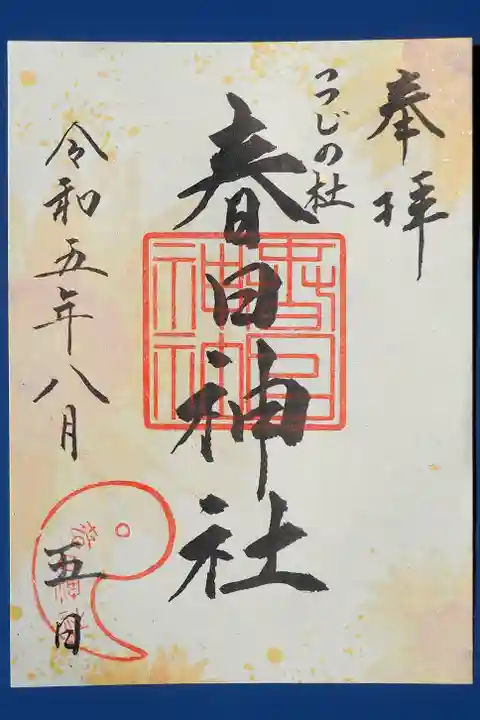 奉拝
つつじの杜
春日神社
令和五年八月
五日